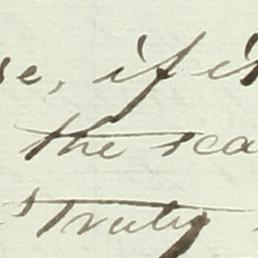 se, if it
the sea
Truly